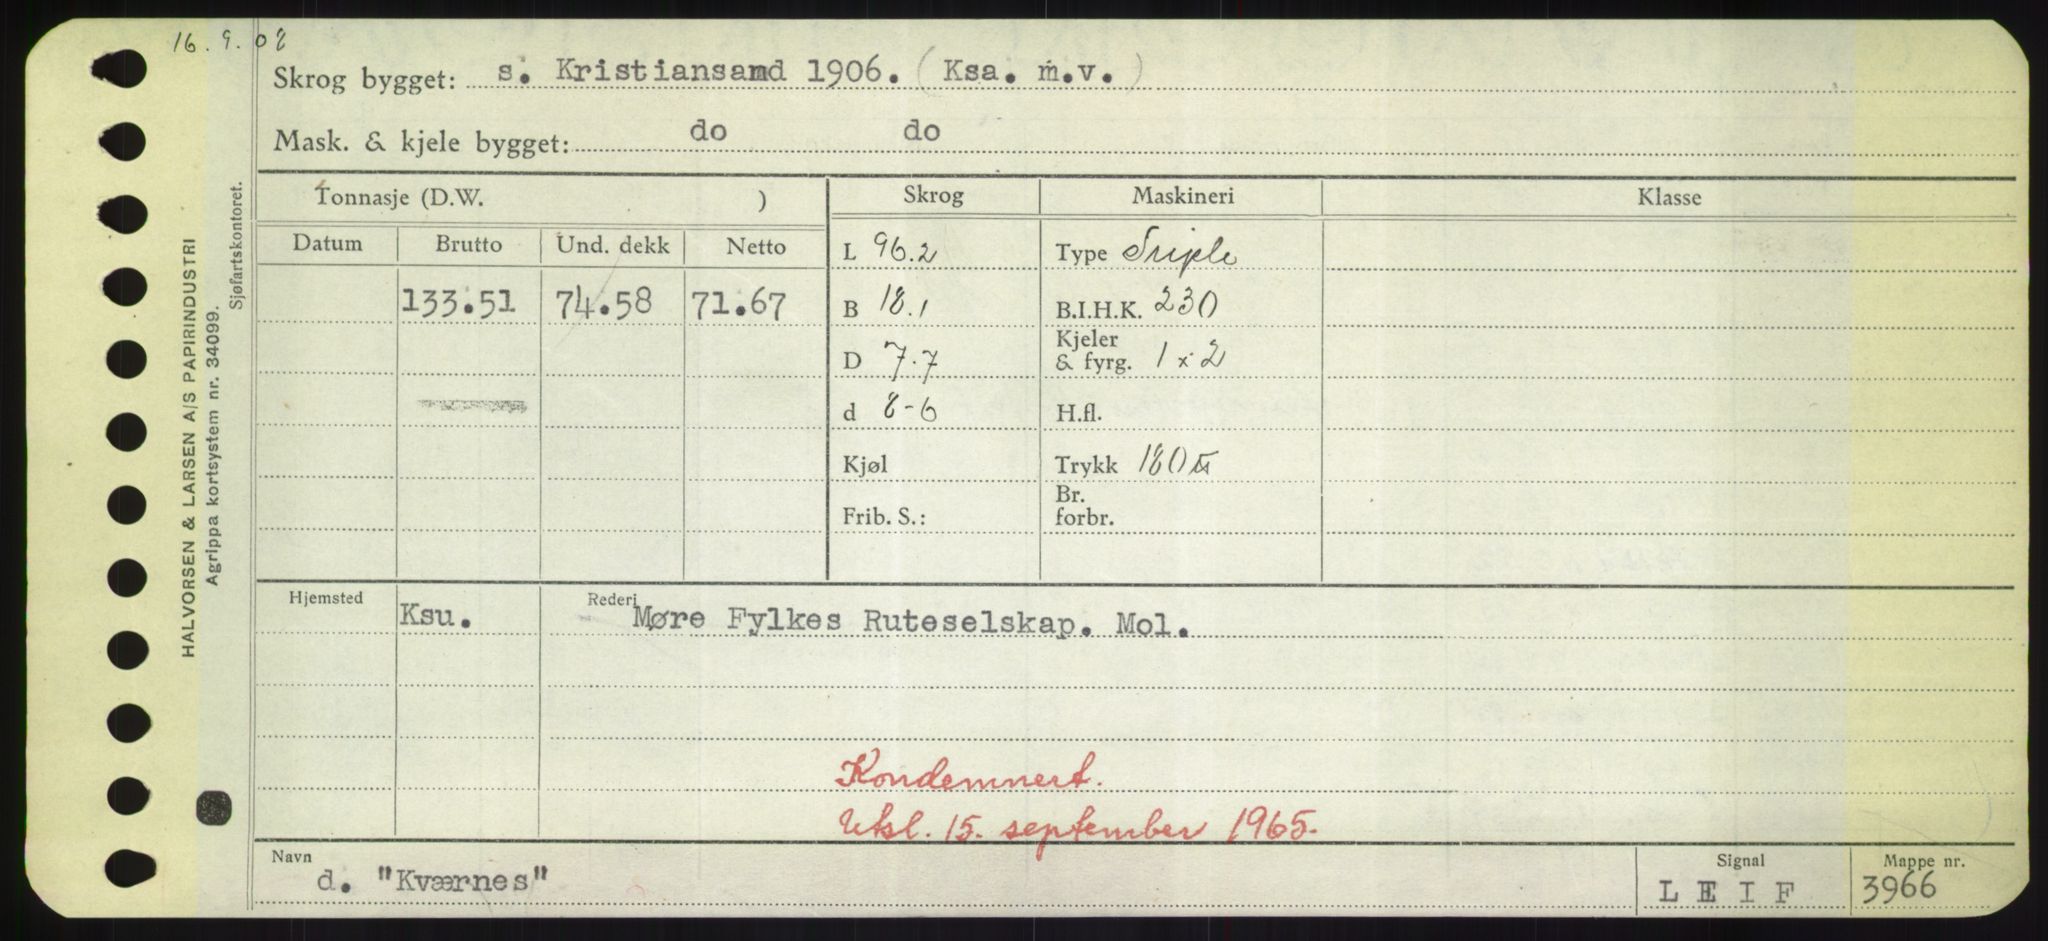 16.9.08
Skrog bygget: s. Kristiansand 1906. (Ksa. m.v.)
Mask. & kjele bygget: do do
Tonnasje (D.W. ) Skrog Maskineri Klasse
Datum Brutto Und. dekk Netto L 96.2 Type Triple
133.51 74.58 71.67 B 18.1 B.I.H.K. 230
D 7.7 Kjeler & fyrg. 1 x 2
d 8-6 H.fl.
Kjøl Trykk 180
Frib. S.: Br. forbr.
Hjemsted Ksu. Rederi Møre Fylkes Ruteselskap. Mol.
Kondemnert.
Utsl. 15. september 1965.
Navn d. "Kværnes" Signal L E I F Mappe nr. 3966
HALVORSEN & LARSEN A/S PAPIRINDUSTRI
Agrippa kortsystem nr. 34099.
Sjøfartskontoret.